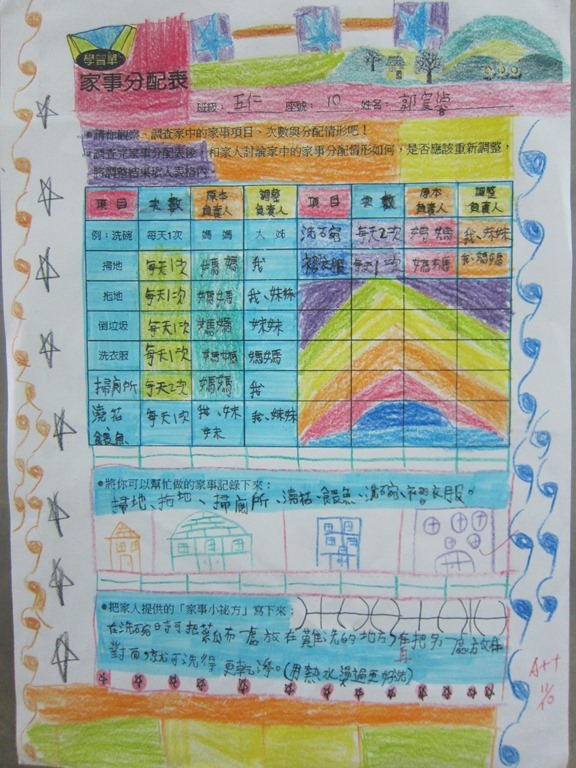 學習單
家事分配表
班級：五仁 座號：10 姓名：郭
●請你觀察、調查家中的家事項目、次數與分配情形吧！
●調查完家事分配表後，和家人討論家中的家事分配情形如何，是否應該重新調整，
將調整結果填入表格內。
項目 次數 原本負責人 調整負責人 項目 次數 原本負責人 調整負責人
例：洗碗 每天1次 媽媽 大姊 洗碗 每天2次 媽媽 我、妹妹
掃地 每天1次 媽媽 我 摺衣服 每天1次 媽媽 我、媽媽
拖地 每天1次 媽媽 我、妹妹
倒垃圾 每天1次 媽媽 妹妹
洗衣服 每天1次 媽媽 媽媽
掃廁所 每天2次 媽媽 我
澆花 每天1次 我、妹 我、妹妹
餵魚 妹
●將你可以幫忙做的家事記錄下來：
掃地、拖地、掃廁所、澆花、餵魚、洗碗、摺衣服。
●把家人提供的「家事小祕方」寫下來：
在洗碗時可把菜瓜布一處放在難洗的地方，再把另一處放在
對面 就可洗得更乾淨。(用熱水燙過更好洗)
A++